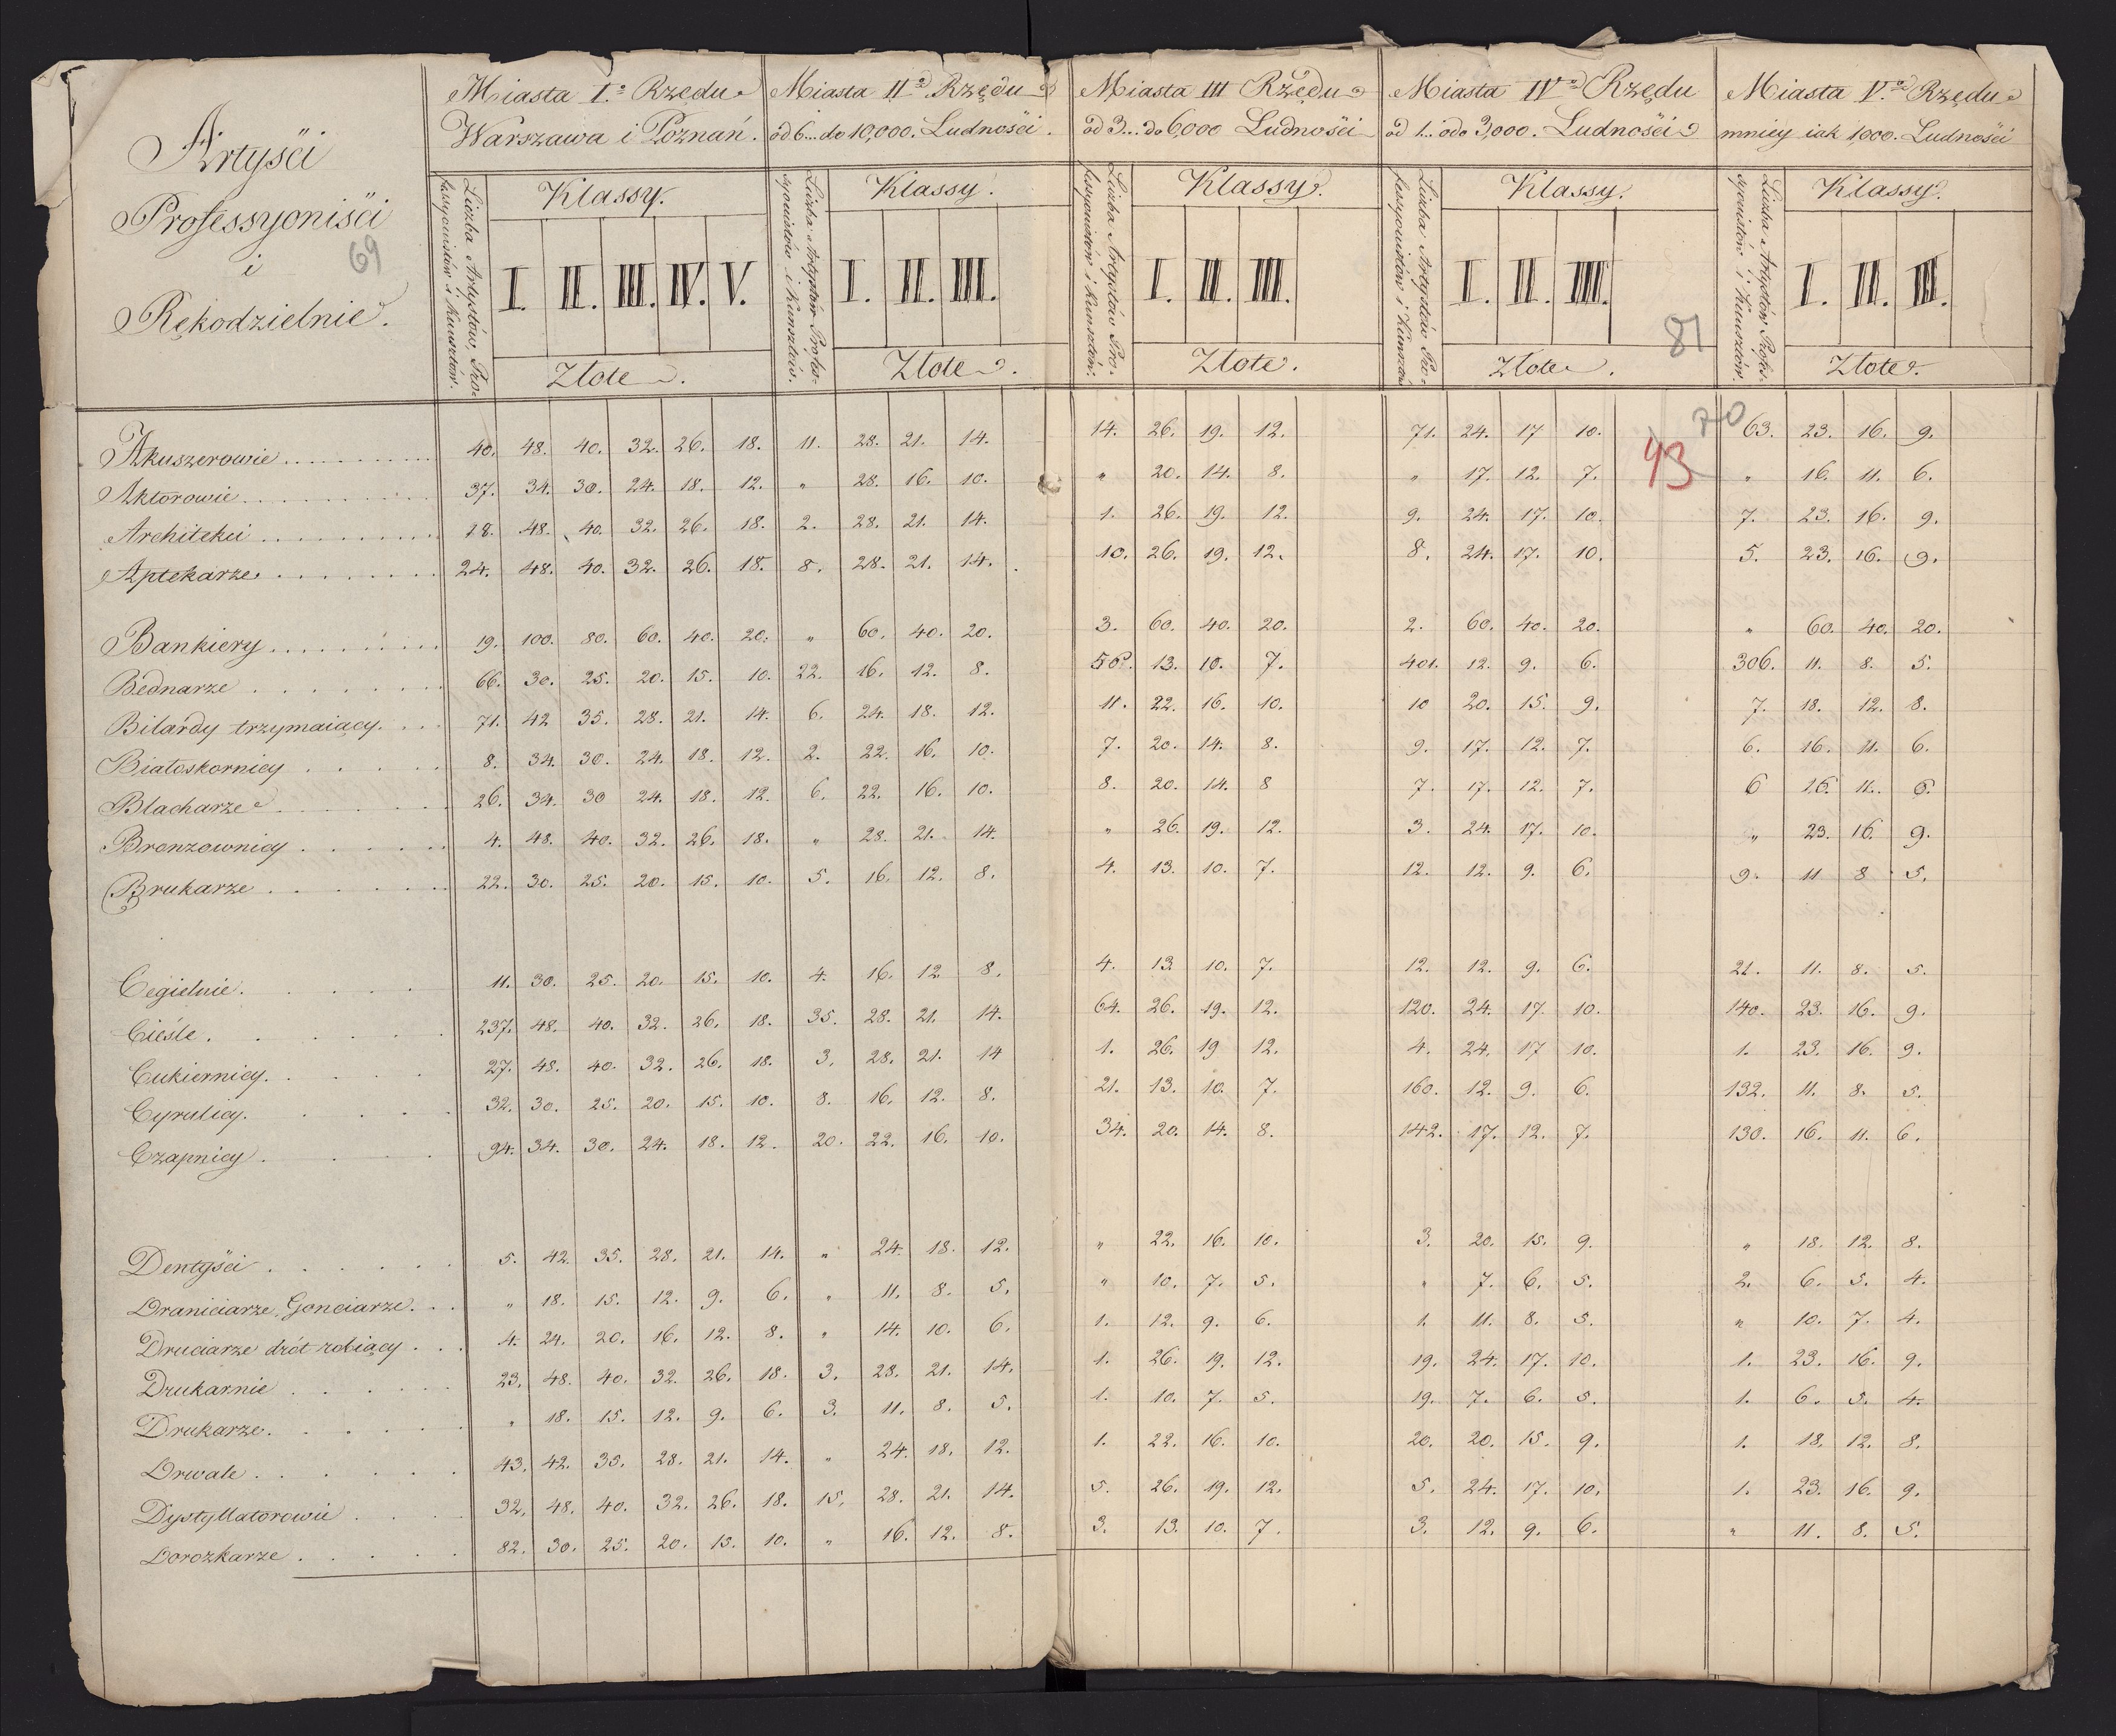 Artyści
Professyoniści
i
Rękodzielnie.
69
Miasta I.o Rzędu
Warszawa i Poznań.
Miasta II.o Rzędu
od 6... do 10,000. Ludności.
Miasta III Rzędu
od 3... do 6000 Ludności
Miasta IV.o Rzędu
od 1... do 3,000. Ludności
Miasta V.o Rzędu
mniey iak 1000. Ludności
Liczba Artystów, Professyonistów i Kunsztów.
Klassy.
I. II. III. IV. V.
Złote.
Liczba Artystów Professyonistów i Kunsztów.
Klassy.
I. II. III.
Złote.
Liczba Artystów Professyonistów i Kunsztów.
Klassy.
I. II. III.
Złote.
Liczba Artystów Professyonistów i Kunsztów
Klassy.
I. II. III.
Złote.
81
Liczba Artystów Professyonistów i Kunsztów.
Klassy.
I. II. III.
Złote.
70
43
Akuszerowie 40. 48. 40. 32. 26. 18. 11. 28. 21. 14. 14. 26. 19. 12. 71. 24. 17 10. 63. 23. 16. 9.
Aktorowie 37. 34. 30. 24. 18. 12. „ 28. 16. 10. „ 20. 14. 8. „ 17. 12. 7. „ 16. 11. 6.
Architekci 18. 48. 40. 32. 26. 18. 2. 28. 21. 14. 1. 26. 19. 12. 9. 24. 17. 10. 7. 23. 16. 9.
Aptekarze 24. 48. 40. 32. 26. 18. 8. 28. 21. 14. 10. 26. 19. 12. 8. 24. 17. 10. 5. 23. 16. 9.
Bankiery 19. 100. 80. 60. 40. 20. „ 60. 40. 20. 3. 60. 40. 20. 2. 60. 40. 20. „ 60. 40. 20.
Bednarze 66. 30. 25. 20. 15. 10. 22. 16. 12. 8. 56. 13. 10. 7. 401. 12. 9. 6. 306. 11. 8. 5.
Bilardy trzymaiący. 71. 42 35. 28. 21. 14. 6. 24. 18. 12. 11. 22. 16. 10. 10 20. 15. 9. 7. 18. 12. 8.
Białoskornicy 8. 34. 30. 24. 18. 12. 2. 22. 16. 10. 7. 20. 14. 8. 9. 17. 12. 7. 6. 16. 11. 6.
Blacharze 26. 34. 30 24. 18. 12. 6. 22. 16. 10. 8. 20. 14. 8 7. 17. 12. 7. 6 16. 11. 6.
Bronzownicy 4. 48. 40. 32. 26. 18. „ 28. 21. 14. „ 26. 19. 12. 3. 24. 17. 10. „ 23. 16. 9.
Brukarze 22. 30. 25. 20. 15. 10. 5. 16. 12. 8. 4. 13. 10. 7. 12. 12. 9. 6. 9. 11 8 5.
Cegielnie. 11. 30. 25. 20. 15. 10. 4. 16. 12. 8. 4. 13 10. 7. 12. 12. 9. 6. 21. 11. 8. 5.
Cieśle. 237. 48. 40. 32. 26. 18. 35. 28. 21. 14. 64. 26. 19. 12. 120. 24. 17. 10. 140. 23. 16. 9.
Cukiernicy. 27. 48. 40. 32. 26. 18. 3. 28. 21. 14 1. 26. 19 12. 4. 24. 17 10. 1. 23. 16. 9.
Cyrulicy. 32. 30. 25. 20. 15. 10. 8. 16. 12. 8. 21. 13. 10. 7. 160. 12. 9. 6. 132. 11. 8. 5.
Czapnicy. 94. 34. 30. 24. 18. 12. 20. 22. 16. 10. 34. 20. 14. 8. 142. 17. 12. 7. 130. 16. 11. 6.
Dentyści 5. 42. 35. 28. 21. 14. „ 24. 18. 12. „ 22. 16. 10. 3. 20. 15. 9. „ 18. 12. 8.
Draniciarze, Gonciarze. „ 18. 15. 12. 9. 6. „ 11. 8. 5. „ 10. 7. 5. „ 7. 6. 5. 2. 6. 5. 4.
Druciarze drót robiący 4. 24. 20. 16. 12. 8. „ 14. 10. 6. 1. 12. 9. 6. 1. 11. 8. 5. „ 10. 7. 4.
Drukarnie 23. 48. 40. 32. 26. 18. 3. 28. 21. 14. 1. 26. 19. 12. 19. 24. 17. 10. 1. 23. 16. 9.
Drukarze. „ 18. 15. 12. 9. 6. 3. 11. 8. 5. 1. 10. 7. 5. 19. 7. 6. 5. 1. 6. 5. 4.
Drwale 43. 42. 35. 28. 21. 14. „ 24. 18. 12. 1. 22. 16. 10. 20. 20. 15. 9. 1. 18. 12. 8.
Dystyllatorowie 32. 48. 40. 32. 26. 18. 15. 28. 21. 14. 5. 26. 19. 12. 5. 24. 17. 10. 1. 23. 16. 9.
Dorozkarze 82. 30. 25. 20. 15. 10. „ 16. 12. 8. 3. 13. 10. 7. 3. 12. 9. 6. „ 11. 8. 5.